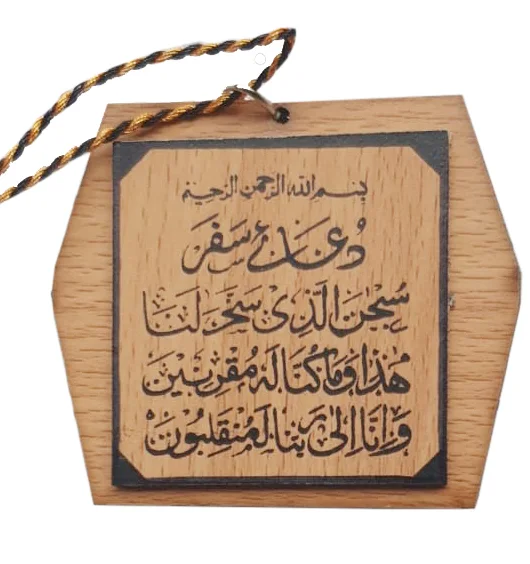 بسم الله الرحمن الرحيم
دُعَائے سَفَر
سُبْحٰنَ الَّذِیْ سَخَّرَ لَنَا
هٰذَا وَمَا كُنَّا لَهٗ مُقْرِنِیْنَ
وَاِنَّا اِلٰی رَبِّنَا لَمُنْقَلِبُوْنَ